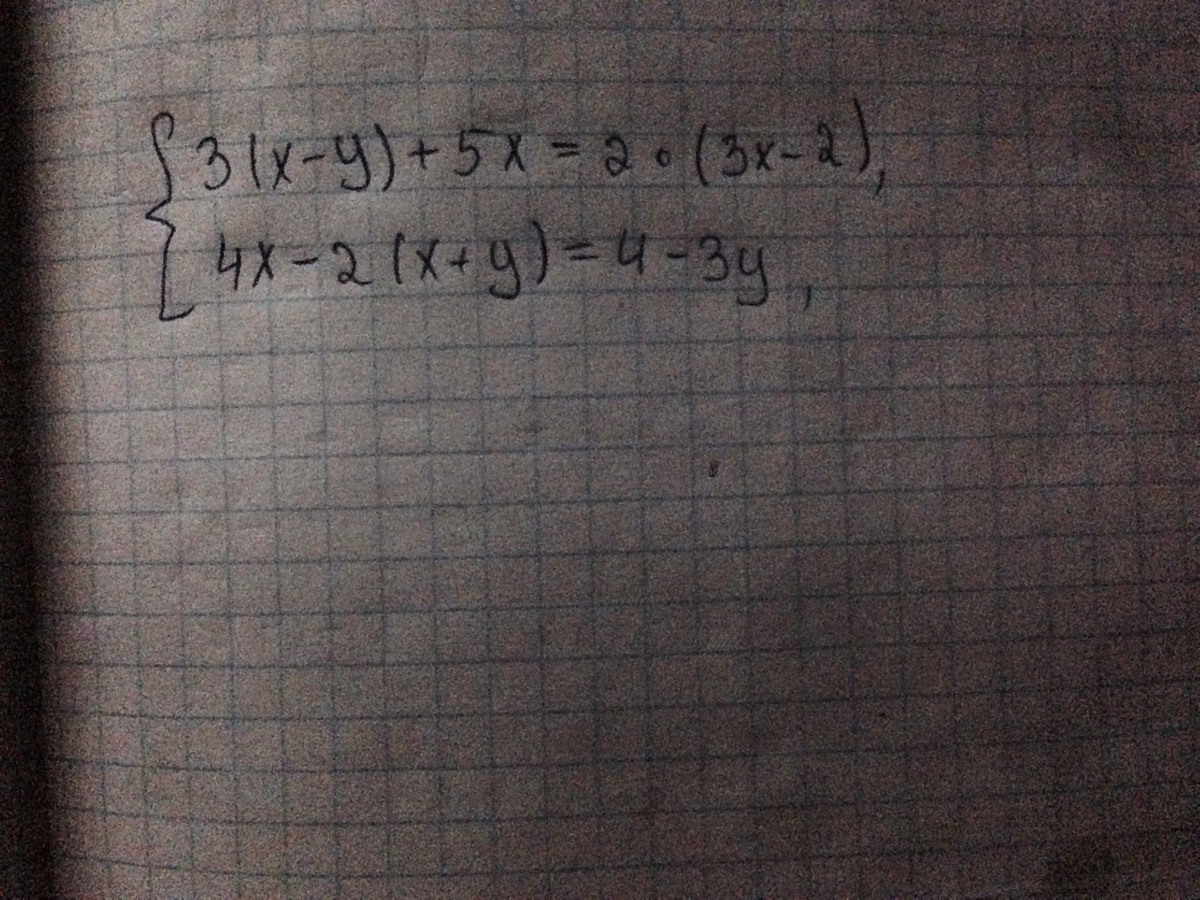 3(x-y)+5x=2∘(3x-2),
4x-2(x+y)=4-3y,